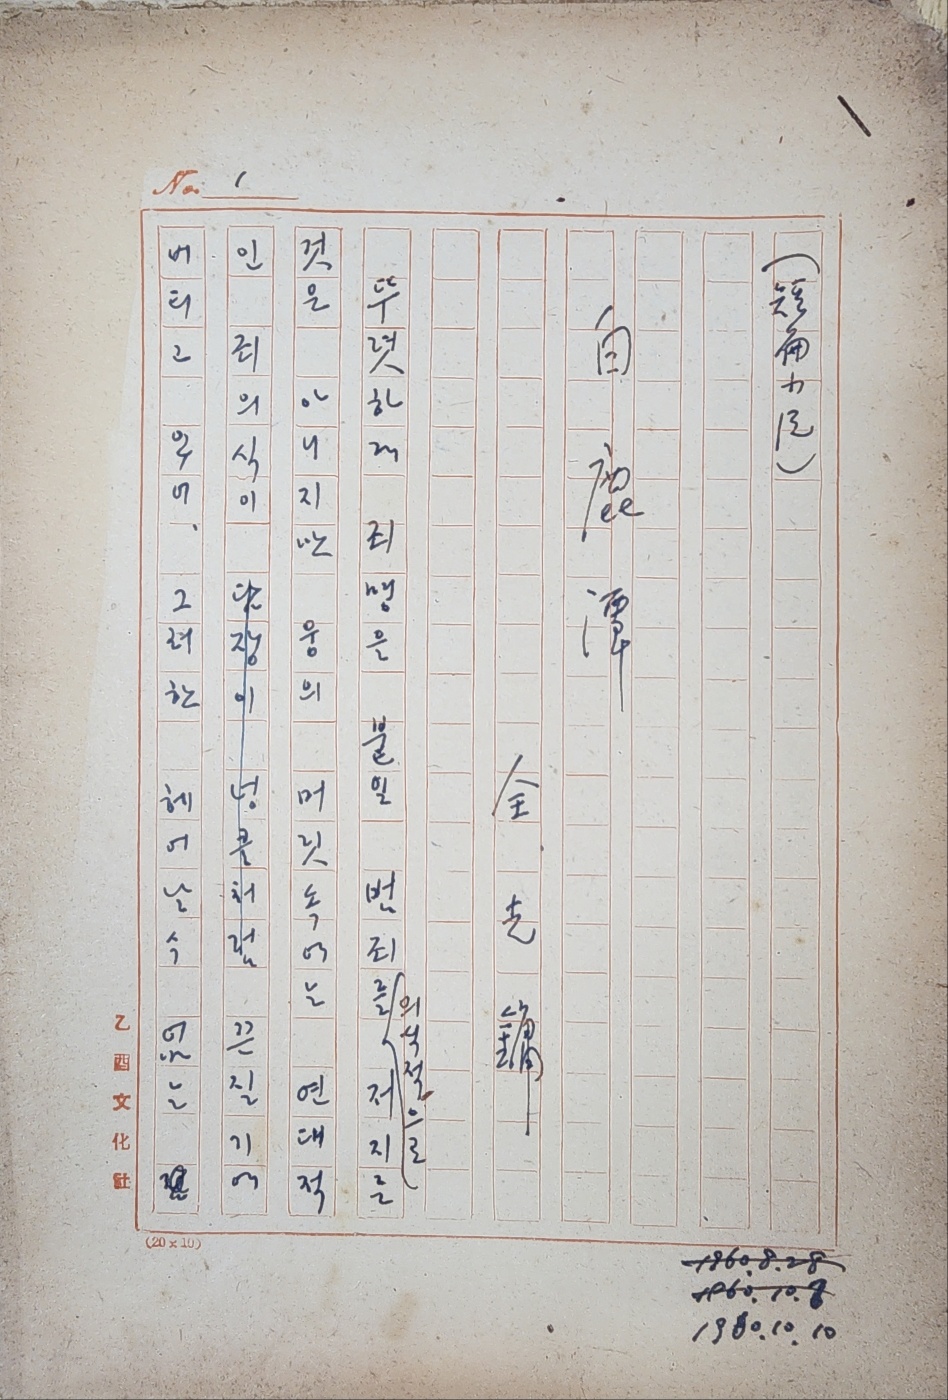 No. 1
(短篇
白鹿潭
全光鏞
뚜렷하게 죄명을 붙일 범죄를 저지른
의식적으로
것은 아니지만 웅의 머릿속에는 연대적
인 죄의식이 담장이 넝쿨처럼 끈질기게
버티고 있어, 그러한 헤어날수 없는
乙酉文化社
(20×10)
1960.8.28
1960.10.8
1960.10.10